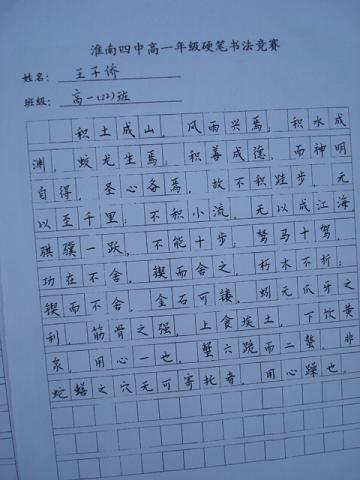 淮南四中高一年级硬笔书法竞赛
姓名：王子侨
班级：高一(22)班
积土成山，风雨兴焉；积水成
渊，蛟龙生焉；积善成德，而神明
自得，圣心备焉，故不积跬步，无
以至千里；不积小流，无以成江海，
骐骥一跃，不能十步；驽马十驾，
功在不舍，锲而舍之，朽木不折；
锲而不舍，金石可镂。蚓无爪牙之
利，筋骨之强，上食埃土，下饮黄
泉，用心一也。蟹六跪而二螯，非
蛇鳝之穴无可寄托者，用心躁也。